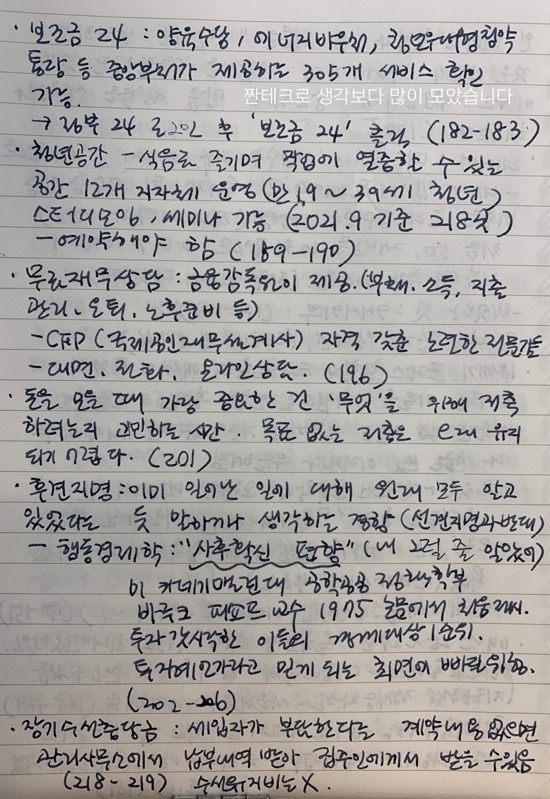 · 보조금 24 : 양육수당, 에너지바우처, 청년우대형청약
통장 등 중앙부처가 제공하는 305개 서비스 확인
가능.
짠테크로 생각보다 많이 모았습니다
→ 정부 24 로그인 후 '보조금 24' 클릭 (182-183)
· 청년공간 - 식음료 즐기며 작업에 열중할 수 있는
공간 12개 지자체 운영 (만 19 ~ 39세 청년)
스터디모임, 세미나 가능 (2021.9 기준 218곳)
- 예약해야 함 (189-190)
· 무료재무상담 : 금융감독원이 제공. (부채, 소득, 지출
관리, 은퇴, 노후준비 등)
- CFP (국제공인재무설계사) 자격 갖춘 노련한 전문가들
- 대면, 전화, 온라인상담. (196)
· 돈을 모을 때 가장 중요한 건 '무엇'을 위해 저축
하려는지 고민하는 시간. 목표 없는 저축은 오래 유지
되기 어렵다. (201)
· 후견지명 : 이미 일어난 일에 대해 원래 모두 알고
있었다는 듯 말하거나 생각하는 경향 (선견지명과 반대)
- 행동경제학 : "사후확신 편향" (내 그럴 줄 알았어)
미 카네기멜런대 공학공공 정책학부
바루크 피쇼프 교수 1975 논문에서 처음 제시.
투자 갓 시작한 이들의 경계대상 1순위.
투자예언가라고 믿게 되는 최면에 빠질 위험.
(202-206)
· 장기수선충당금 : 세입자가 부담한다는 계약내용 없으면
관리사무소에서 납부내역 받아 집주인에게서 받을 수 있음
(218-219) 수선유지비는 X.